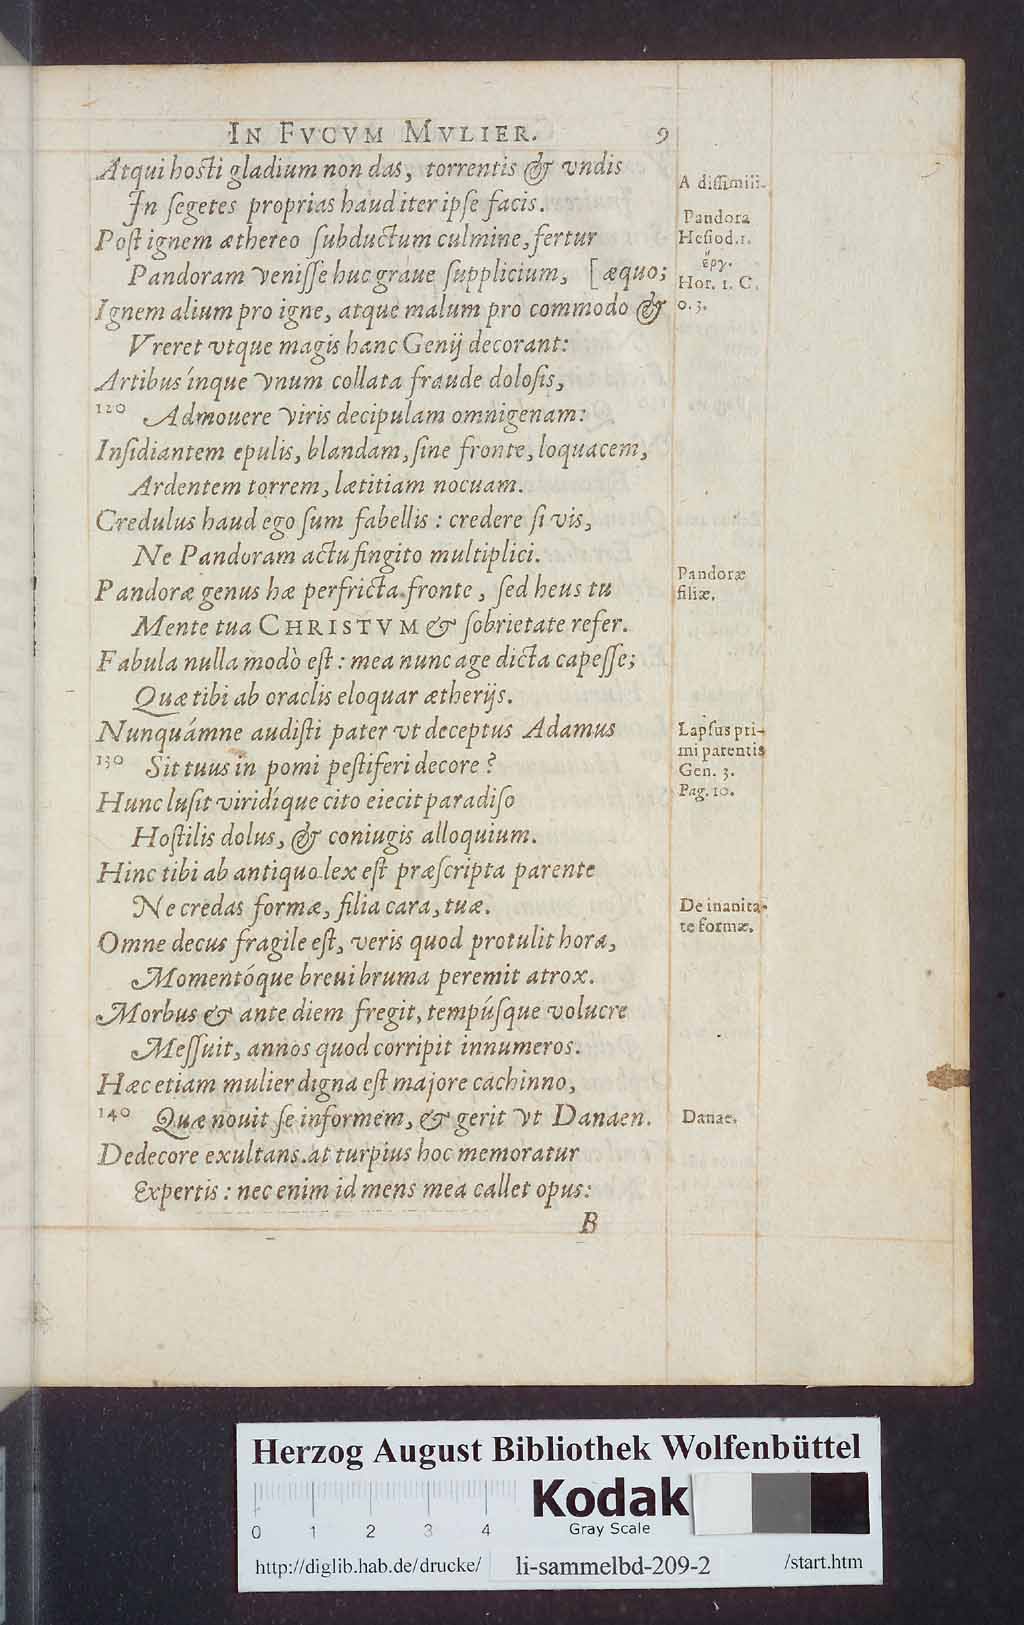 IN FVCVM MVLIER. 9
Atqui hosti gladium non das, torrentis & vndis
In ſegetes proprias haud iter ipſe facis.
Poſt ignem æthereo ſubductum culmine, fertur
Pandoram veniſſe huc graue ſupplicium, [æquo;
Ignem alium pro igne, atque malum pro commodo &
Vreret vtque magis hanc Genij decorant:
Artibus ínque vnum collata fraude doloſis,
120 Admouere viris decipulam omnigenam:
Inſidiantem epulis, blandam, ſine fronte, loquacem,
Ardentem torrem, lætitiam nocuam.
Credulus haud ego ſum fabellis : credere ſi vis,
Ne Pandoram actu fingito multiplici.
Pandoræ genus hæ perfricta fronte, ſed heus tu
Mente tua CHRISTVM & ſobrietate refer.
Fabula nulla modò eſt : mea nunc age dicta capeſſe;
Quæ tibi ab oraclis eloquar ætherijs.
Nunquámne audiſti pater vt deceptus Adamus
130 Sit tuus in pomi peſtiferi decore?
Hunc luſit viridíque cito eiecit paradiſo
Hoſtilis dolus, & coniugis alloquium.
Hinc tibi ab antiquo lex eſt præſcripta parente
Ne credas formæ, filia cara, tuæ.
Omne decus fragile eſt, veris quod protulit hora,
Momentóque breui bruma peremit atrox.
Morbus & ante diem fregit, tempúſque volucre
Meſſuit, annos quod corripit innumeros.
Hæc etiam mulier digna eſt majore cachinno,
140 Quæ nouit ſe informem, & gerit vt Danaen.
Dedecore exultans. at turpius hoc memoratur
Expertis : nec enim id mens mea callet opus:
B
A diſſimili.
Pandora
Heſiod. 1.
ἔργ.
Hor. 1. C.
o. 3.
Pandoræ
filiæ.
Lapſus pri-
mi parentis
Gen. 3.
Pag. 10.
De inanita-
te formæ.
Danae.
Herzog August Bibliothek Wolfenbüttel
Kodak
Gray Scale
0 1 2 3 4
http://diglib.hab.de/drucke/ li-sammelbd-209-2 /start.htm